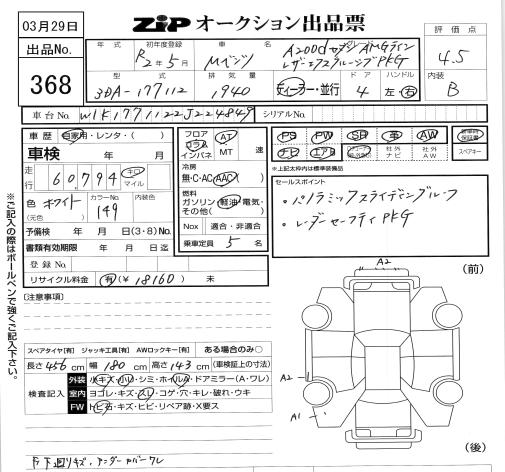 03月29日
ZIP オークション出品票
出品No.
368
年式 初年度登録 車名 ドア ハンドル
R2年5月 Mベンツ A200dセダンAMGライン
レザーエクスクルーシブPKG
型式 排気量
3DA-177112 1940 ディーラー・並行 4 左・右
評価点
4.5
内装
B
車台No. W1K1771122J224849 シリアルNo.
車歴 自家用・レンタ・( )
車検 年 月
走行 60,794 キロ マイル
色 ホワイト (元色) カラーNo. 149 内装色
予備検 年 月 日(3・8)No.
書類有効期限 年 月 日迄
登録No.
リサイクル料金 有(¥18160) 未
フロア コラム インパネ AT ・MT 速
冷房
無・C・AC(AAC)
燃料
ガソリン・軽油・電気・その他( )
Nox 適合・非適合
乗車定員 5 名
PS PW SR 革 AW
ナビ エアB 社外ナビ 社外AW
新車時保証書
スペアキー
*上記太枠内は標準装備品
セールスポイント
・パノラミックスライディングルーフ
・レーダーセーフティPKG
※ご記入の際はボールペンで強くご記入下さい。
〔注意事項〕
スペアタイヤ[有] ジャッキ工具[有] AWロックキー[有] ある場合のみ○
長さ 456 cm 幅 180 cm 高さ 143 cm (車検証上の寸法)
検査記入
外装 小キズ・小凹・シミ・ホイルA・ドアミラー(A・ワレ)
室内 ヨゴレ・キズ・スレ・コゲ・穴・キレ・破れ・ウキ
FW トビ石・キズ・ヒビ・リペア跡・X要ス
下廻りキズ、アンダーカバーワレ
A2
(前)
A2
A1
(後)